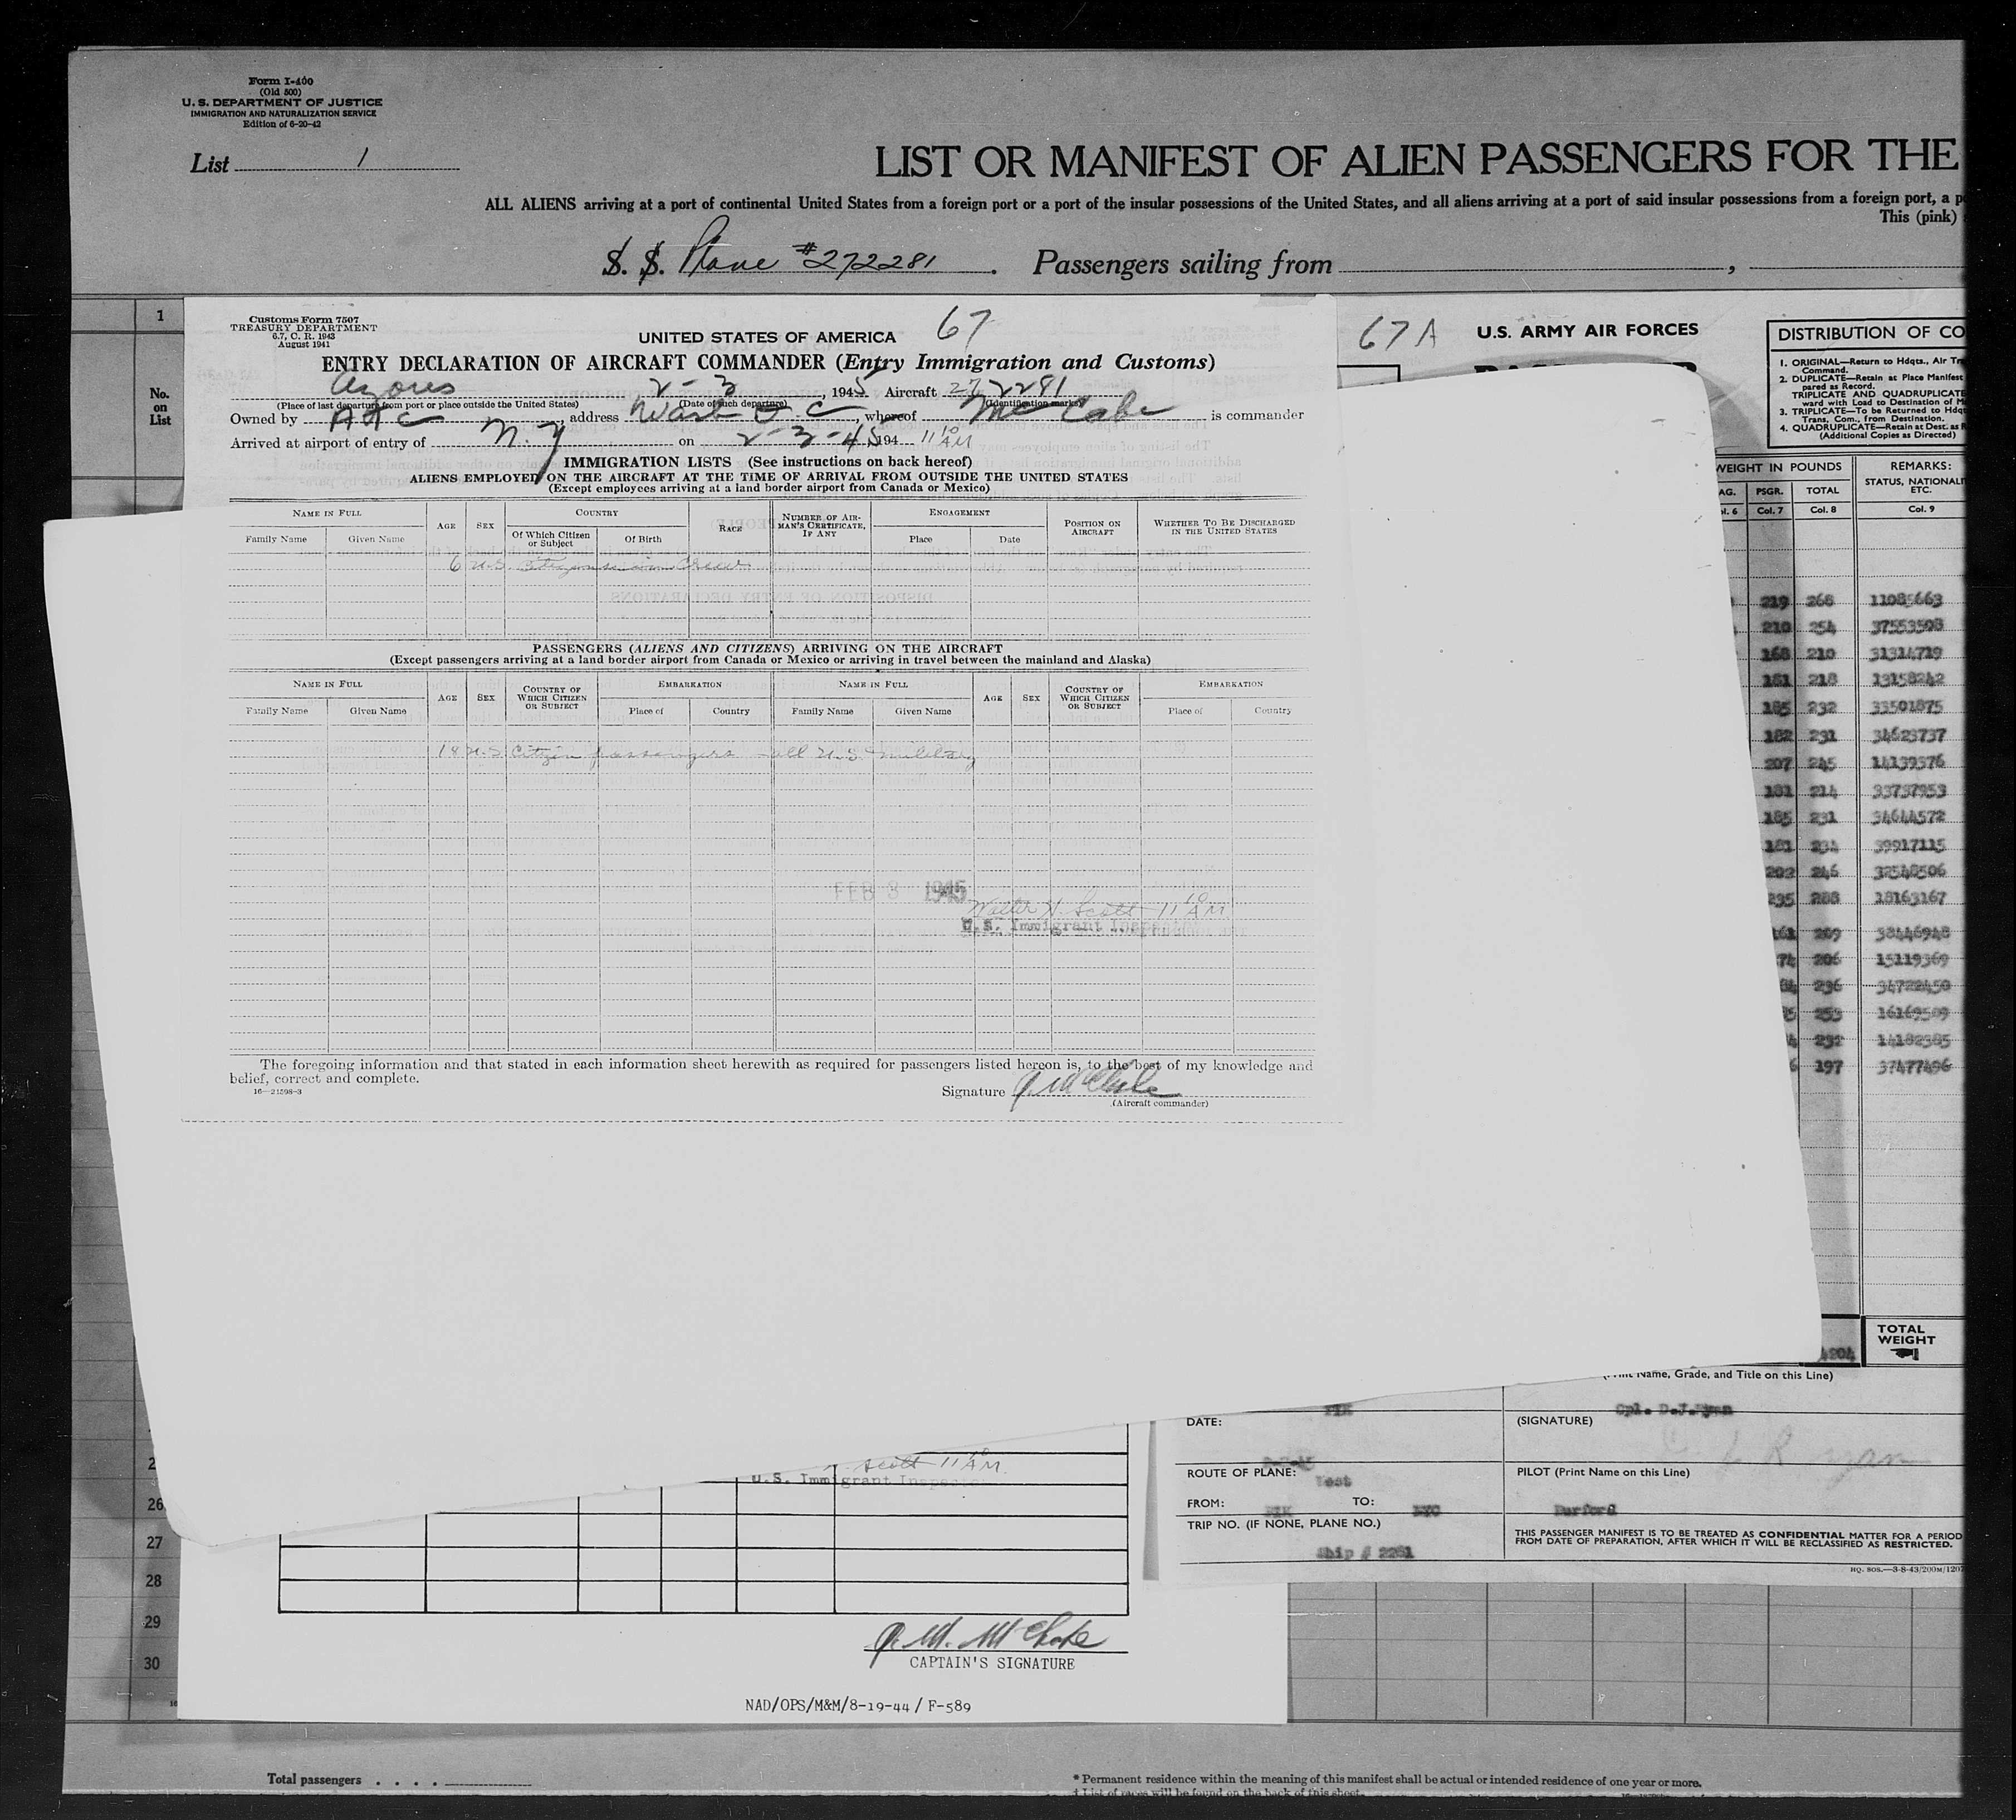 Form I-460
(Old 500)
U. S. DEPARTMENT OF JUSTICE
IMMIGRATION AND NATURALIZATION SERVICE
Edition of 6-20-42
List 1
LIST OR MANIFEST OF ALIEN PASSENGERS FOR THE
ALL ALIENS arriving at a port of continental United States from a foreign port or a port of the insular possessions of the United States, and all aliens arriving at a port of said insular possessions from a foreign port, a
This (pink)
S. S. Plane #272281 . Passengers sailing from ,
1
No.
on
List
Customs Form 7507
TREASURY DEPARTMENT
6.7, C. R. 1943
August 1941
UNITED STATES OF AMERICA 67
ENTRY DECLARATION OF AIRCRAFT COMMANDER (Entry Immigration and Customs)
Azores 2-3, 1945 Aircraft 27 2281
(Place of last departure from port or place outside the United States) (Date of such departure) (Identification marks)
Owned by ATC, address Wash D C, whereof McCabe is commander
Arrived at airport of entry of N. Y on 2-3-45 194 11 10 AM
IMMIGRATION LISTS (See instructions on back hereof)
ALIENS EMPLOYED ON THE AIRCRAFT AT THE TIME OF ARRIVAL FROM OUTSIDE THE UNITED STATES
(Except employees arriving at a land border airport from Canada or Mexico)
NAME IN FULL AGE SEX COUNTRY RACE NUMBER OF AIRMAN'S CERTIFICATE, IF ANY ENGAGEMENT POSITION ON AIRCRAFT WHETHER TO BE DISCHARGED IN THE UNITED STATES
Family Name Given Name Of Which Citizen or Subject Of Birth Place Date
6 U.S. Citizens in Crew
PASSENGERS (ALIENS AND CITIZENS) ARRIVING ON THE AIRCRAFT
(Except passengers arriving at a land border airport from Canada or Mexico or arriving in travel between the mainland and Alaska)
NAME IN FULL AGE SEX COUNTRY OF WHICH CITIZEN OR SUBJECT EMBARKATION NAME IN FULL AGE SEX COUNTRY OF WHICH CITIZEN OR SUBJECT EMBARKATION
Family Name Given Name Place of Country Family Name Given Name Place of Country
18 U.S. Citizen passengers - all U.S. Military
FEB 3 1945
Walter H. Scott 11 10 AM
U.S. Immigrant Inspe
The foregoing information and that stated in each information sheet herewith as required for passengers listed hereon is, to the best of my knowledge and
belief, correct and complete.
16—21598-3
Signature
(Aircraft commander)
67A
U.S. ARMY AIR FORCES
DISTRIBUTION OF CO
1. ORIGINAL—Return to Hdqts., Air Tr
Command.
2. DUPLICATE—Retain at Place Manifest
pared as Record.
TRIPLICATE AND QUADRUPLICATE
ward with Load to Destination of M
3. TRIPLICATE—To be Returned to Hdqt
Trans. Com., from Destination.
4. QUADRUPLICATE—Retain at Dest. as R
(Additional Copies as Directed)
WEIGHT IN POUNDS REMARKS:
AG. PSGR. TOTAL STATUS, NATIONALI
ETC.
Col. 6 Col. 7 Col. 8 Col. 9
219 268 11085663
210 254 37553508
168 210 31314719
181 218 13158242
185 232 33501875
182 231 34623737
207 245 14139576
181 214 33737953
185 231 34644572
181 234 39917115
202 246 32548506
235 288 18163167
161 209 38446948
74 206 15119369
84 236 34722450
5 253 16169509
4 292 14182385
6 197 37477496
4204
TOTAL
WEIGHT
Name, Grade, and Title on this Line)
DATE: PIK
(SIGNATURE) Cpl. D.J. Ryan
ROUTE OF PLANE: West
PILOT (Print Name on this Line)
FROM: PIK TO: NYC
Burford
TRIP NO. (IF NONE, PLANE NO.)
Ship # 2281
THIS PASSENGER MANIFEST IS TO BE TREATED AS CONFIDENTIAL MATTER FOR A PERIOD
FROM DATE OF PREPARATION, AFTER WHICH IT WILL BE RECLASSIFIED AS RESTRICTED.
HQ. SOS.—3-8-43/200M/1207
Scott 11 10 AM
U.S. Immigrant Inspector
26
27
28
29
30
CAPTAIN'S SIGNATURE
NAD/OPS/M&M/8-19-44 / F-589
Total passengers . . . .
* Permanent residence within the meaning of this manifest shall be actual or intended residence of one year or more.
† List of races will be found on the back of this sheet.